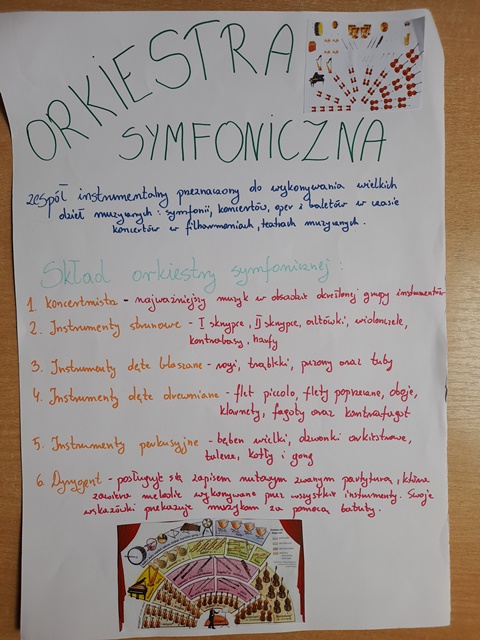 ORKIESTRA
SYMFONICZNA
zespół instrumentalny przeznaczony do wykonywania wielkich
dzieł muzycznych: symfonii, koncertów, oper i baletów w czasie
koncertów w filharmoniach, teatrach muzycznych.
Skład orkiestry symfonicznej:
1. Koncertmistrz - najważniejszy muzyk w obsadzie określonej grupy instrumentów
2. Instrumenty strunowe - I skrzypce, II skrzypce, altówki, wiolonczele,
kontrabasy, harfy
3. Instrumenty dęte blaszane - rogi, trąbki, puzony oraz tuby
4. Instrumenty dęte drewniane - flet piccolo, flety poprzeczne, oboje,
klarnety, fagoty oraz kontrafagot
5. Instrumenty perkusyjne - bęben wielki, dzwonki orkiestrowe,
talerze, kotły i gong
6. Dyrygent - posługuje się zapisem nutowym zwanym partyturą, która
zawiera melodie wykonywane przez wszystkie instrumenty. Swoje
wskazówki przekazuje muzykom za pomocą batuty.